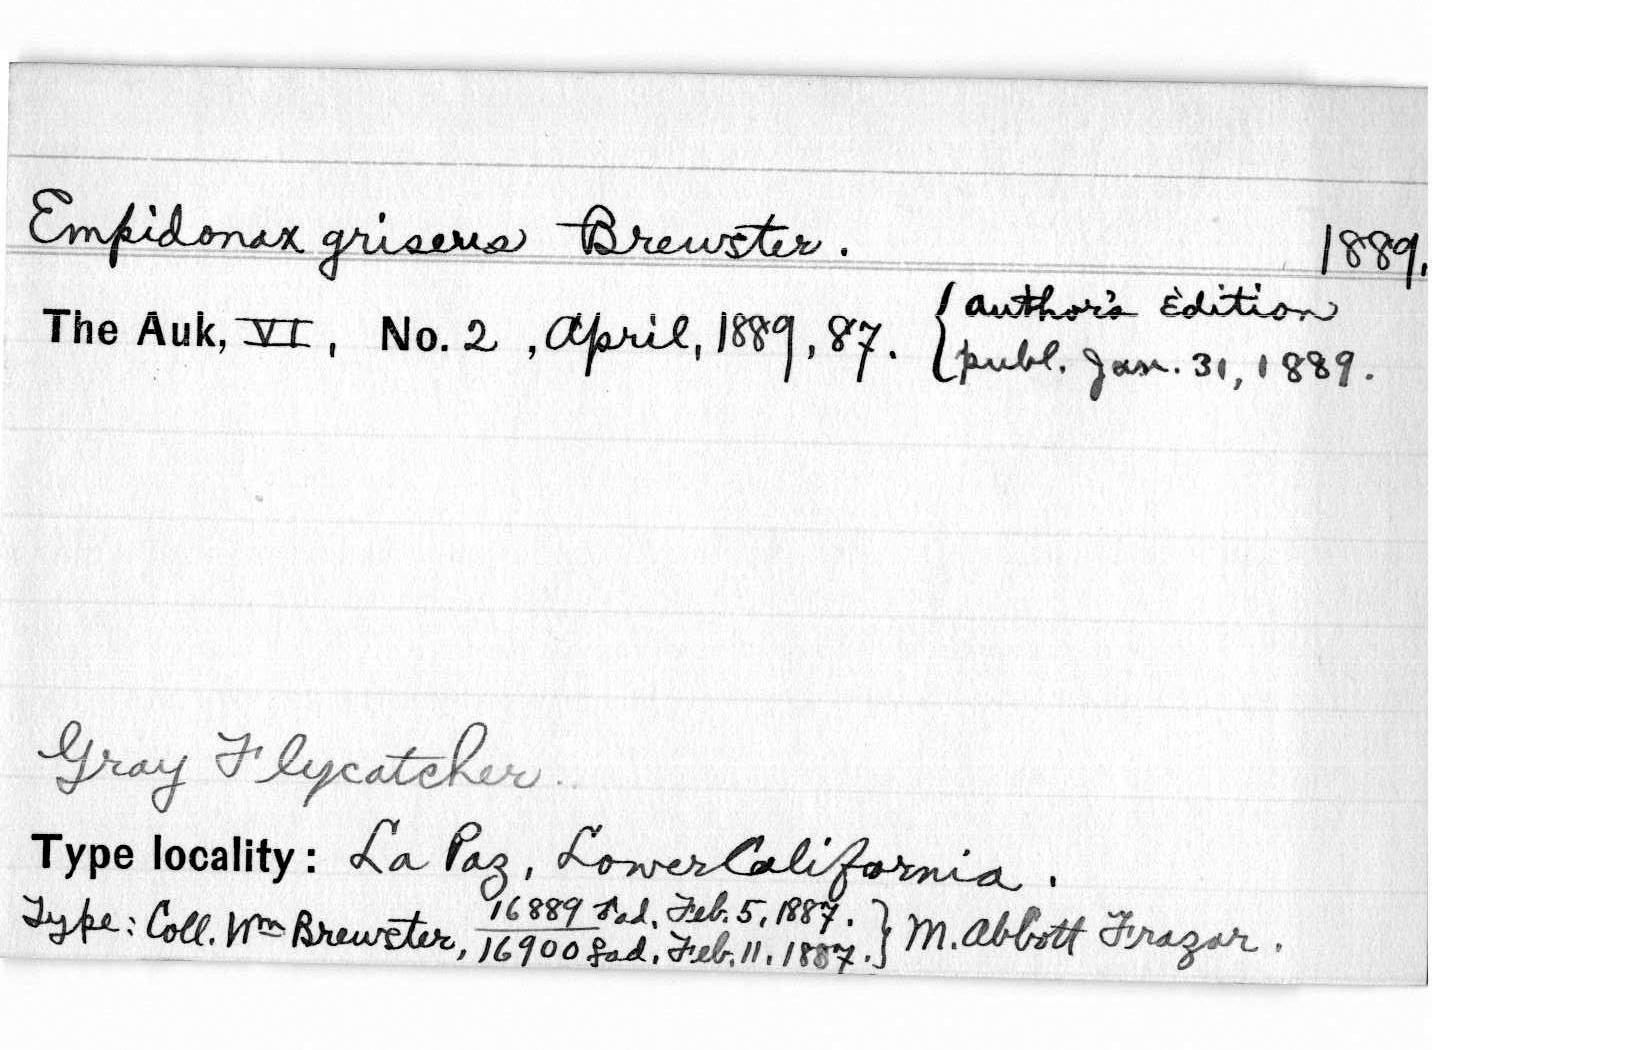 Empidonax griseus Brewster. 1889.
The Auk, VI, No. 2, April, 1889, 87. { author's edition
publ. Jan. 31, 1889.
Gray Flycatcher.
Type locality: La Paz, Lower California.
Type: Coll. Wm Brewster, 16889 ♂ ad. Feb. 5, 1887. } M. Abbott Frazar.
16900 ♀ ad. Feb. 11, 1887.